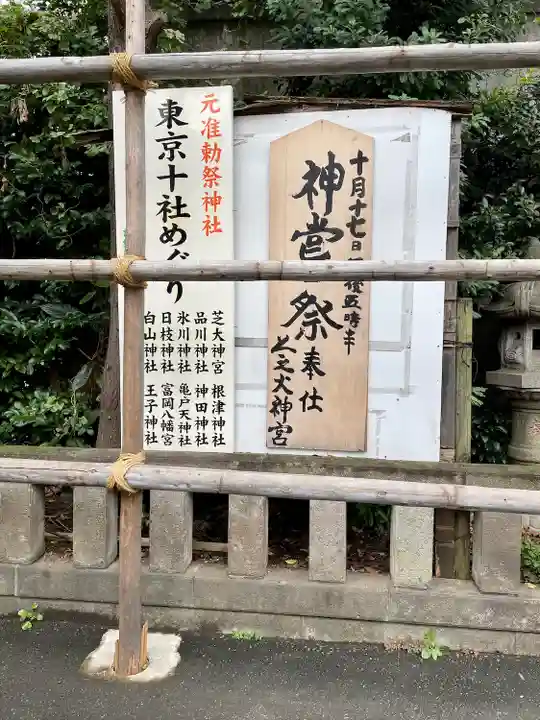 十月十七日
後五時半
神嘗祭
奉仕
大神宮
元准勅祭神社
東京十社めぐり
芝大神宮 根津神社
品川神社 神田神社
氷川神社 亀戸天神社
日枝神社 富岡八幡宮
白山神社 王子神社